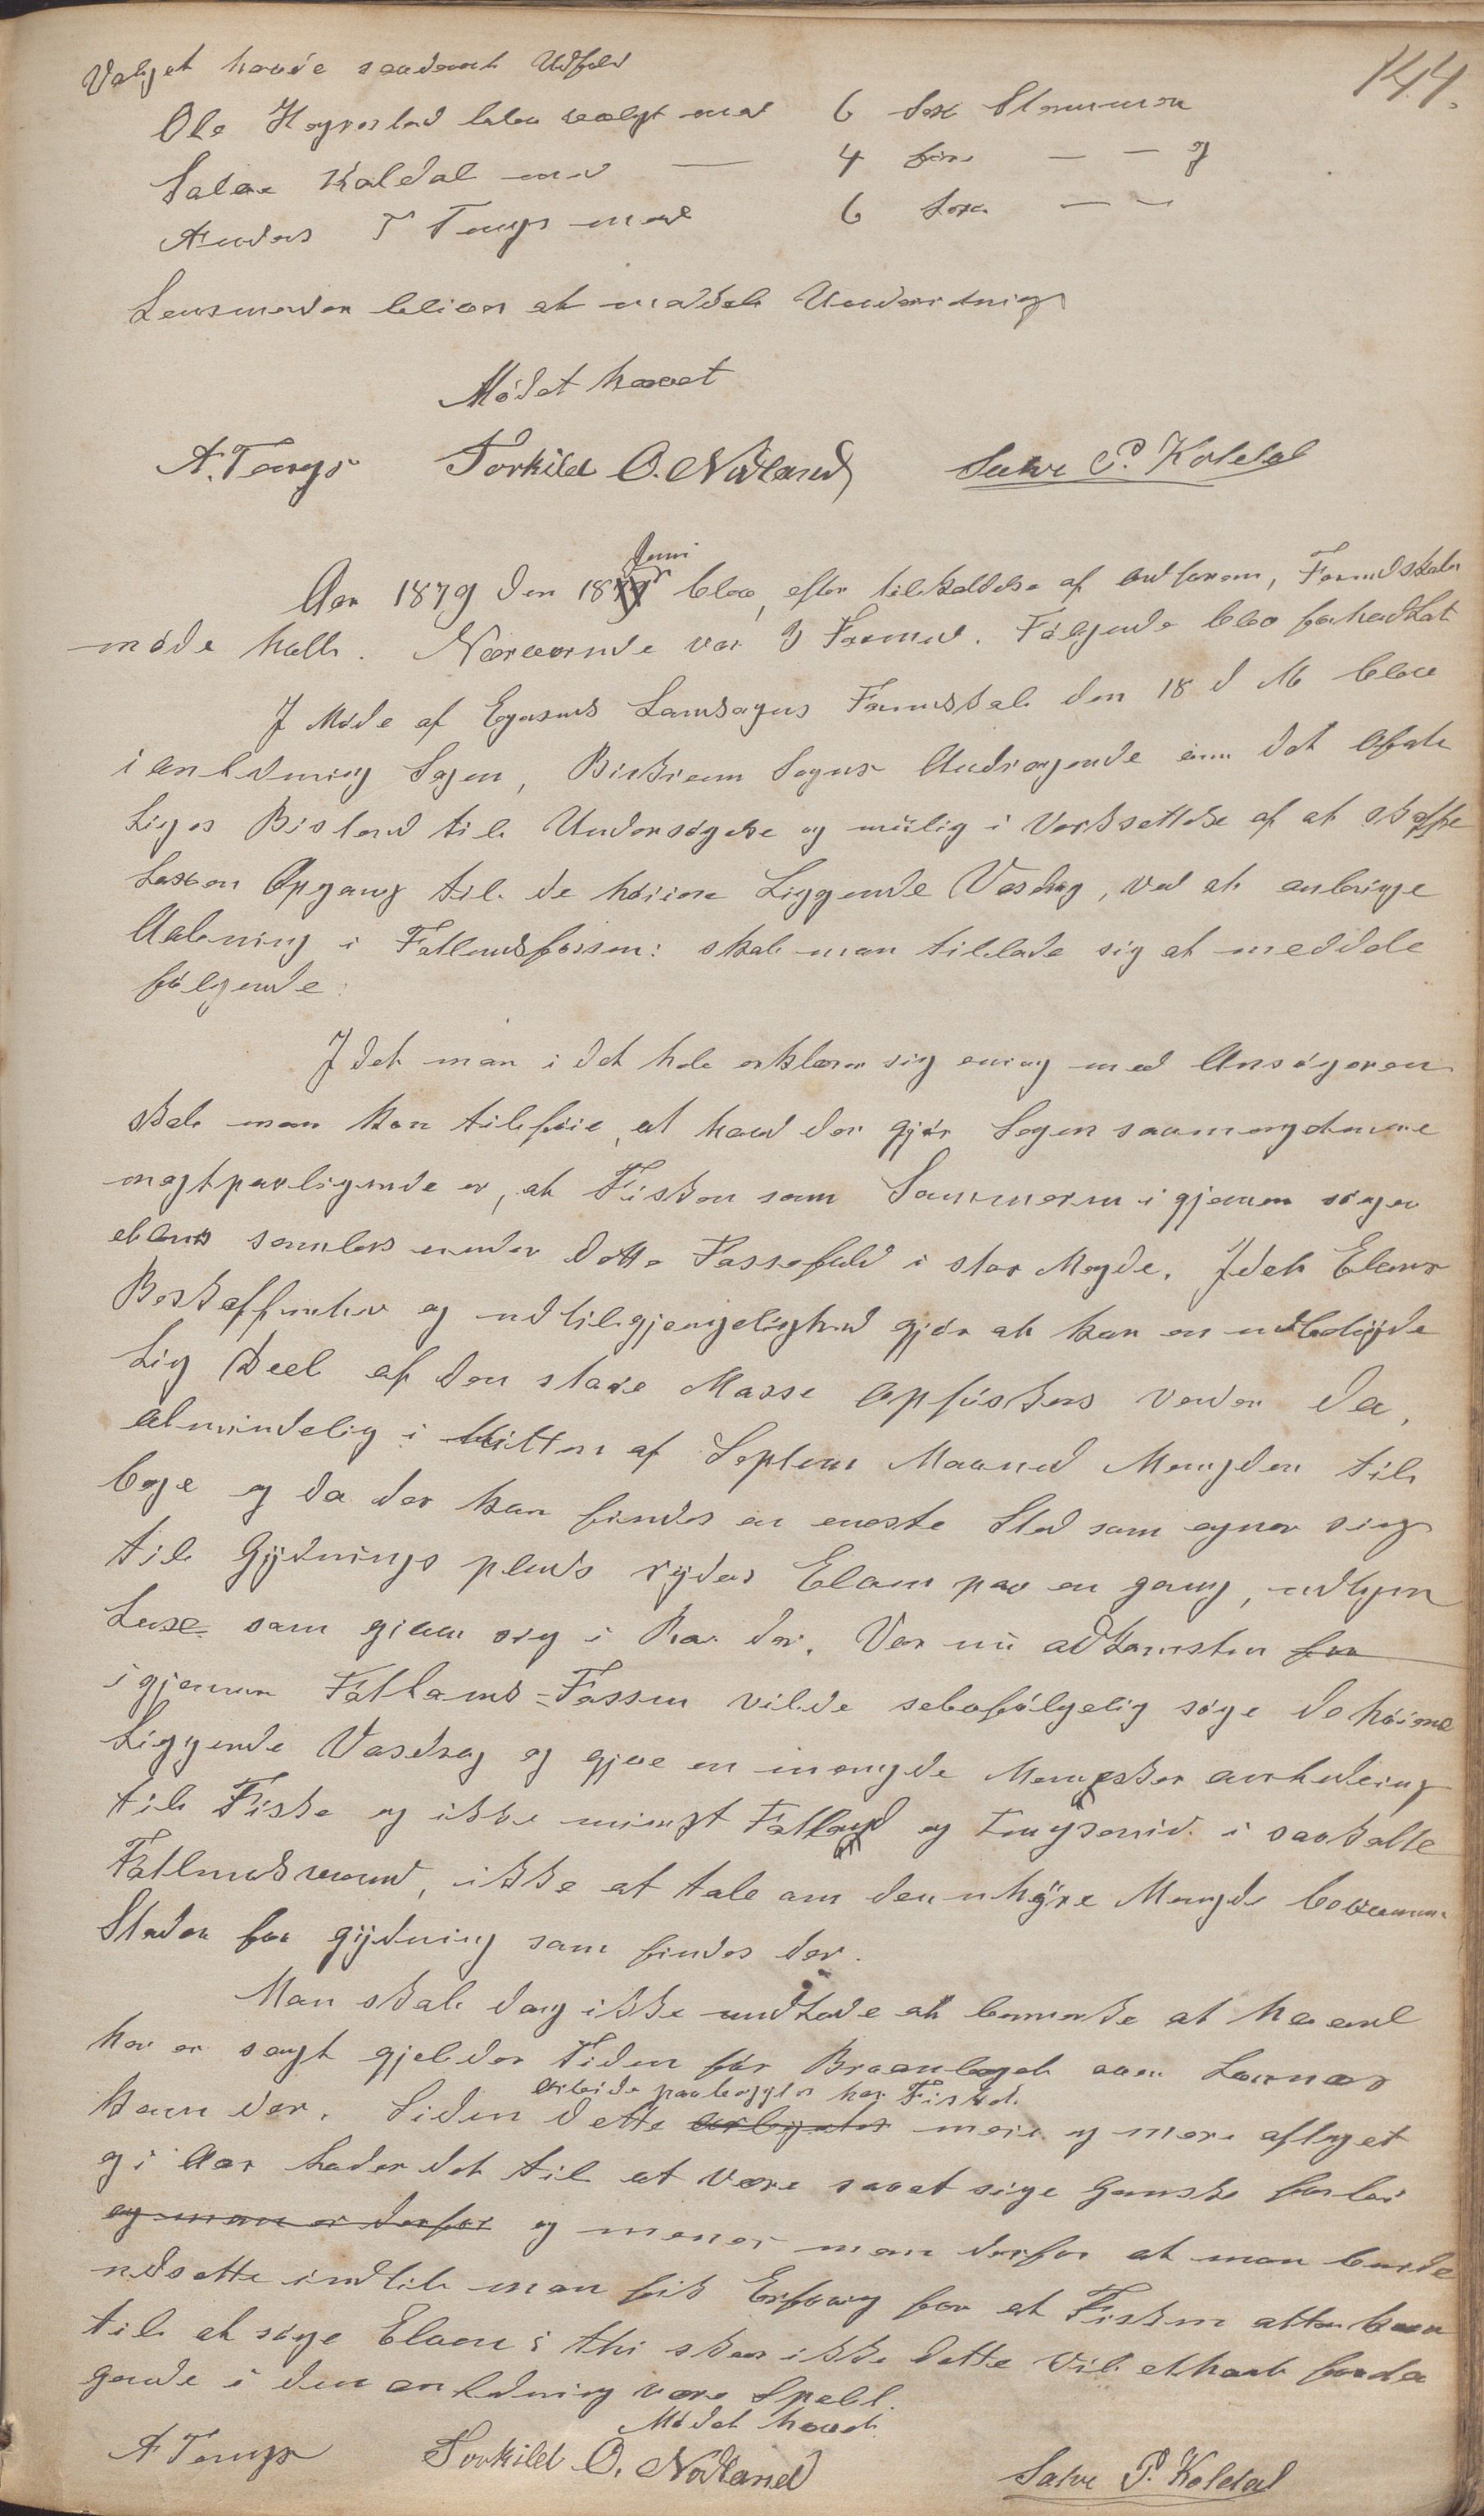 144.
Valget havde saadant Udfald
Ole Hegrestad blev valgt med 6 sex Stemmer
Salve Koldal med — 4 fire — — og
Anders T Tengs med 6 sex — —
Lensmanden bliver at meddele Underretning
Mødet hævet
A. Tengs Torkild O. Nodland Salve P. Koldal
Juni
Aar 1879 den 18 blev, efter tilkaldelse af Ordføreren, Formdskabs
møde holdt. Nærværende var 3 Formd. Følgende blev forhandlet
I Møde af Egersunds Landsogns Formdskab den 18 d M blev
i anledning Sagen, Birkrem Sogns Andragende om det Offent
liges Bistand til Undersøgelse og mulig i Verksettelse af at skaffe
Laxen Opgang til de høiere Liggende Vasdrag, ved at anbringe
Aabning i Fotlandsfossen: skal man tillade sig at meddele
følgende:
Idet man i det hele erklærer sig enig med Ansøgeren
skal man kun tilføie, at hvad der gjør Sagen saameget mere
magtpaaliggende er, at Fisken som Sommeren igjennem søger
elven samles under dette Fossefald i stor Mengde. Idet Elvens
Beskaffenhed og utilgjengelighed gjør at kun en ubetyde
lig Deel af den store Masse opfiskes verder da,
almindelig i Mitten af Septem Maaned Mengden til
bage og da der kun findes en eneste Sted som egner sig
til Gydnings plads ryder Elven paa en gang, udhyre
Laxe som given sig i Ro der. Var nu adkomsten for
igjennem Fotlands-Fossen vilde selvfølgelig søge de høiere
Liggende Vasdrag og give en mengde Mennesker anledning
til Fiske og ikke mindst Fotland og Tengsareid i saakalte
Fotlandsvand, ikke at tale om den uhyre Mengde bekvemme
Steder for gydning som findes der.
Man skal dog ikke undlade at bemerke at hvad
her er sagt gjelder Tiden før Broanleget over Laxnes
arbeide paabegyntes har Fisket
kom der. Siden dette mere og mere aftaget
og i Aar lader det til at være saa at sige ganske forbi
og man er derfor og mener man derfor at man burde
udsette indtil man fik Erfaring for at Fisken atter kom
til at søge Elven; thi sker ikke dette vil ethvert foreta
gende i den anledning være Spildt.
Mødet hævet
A Tengs Torkild O. Nodland Salve P. Koldal